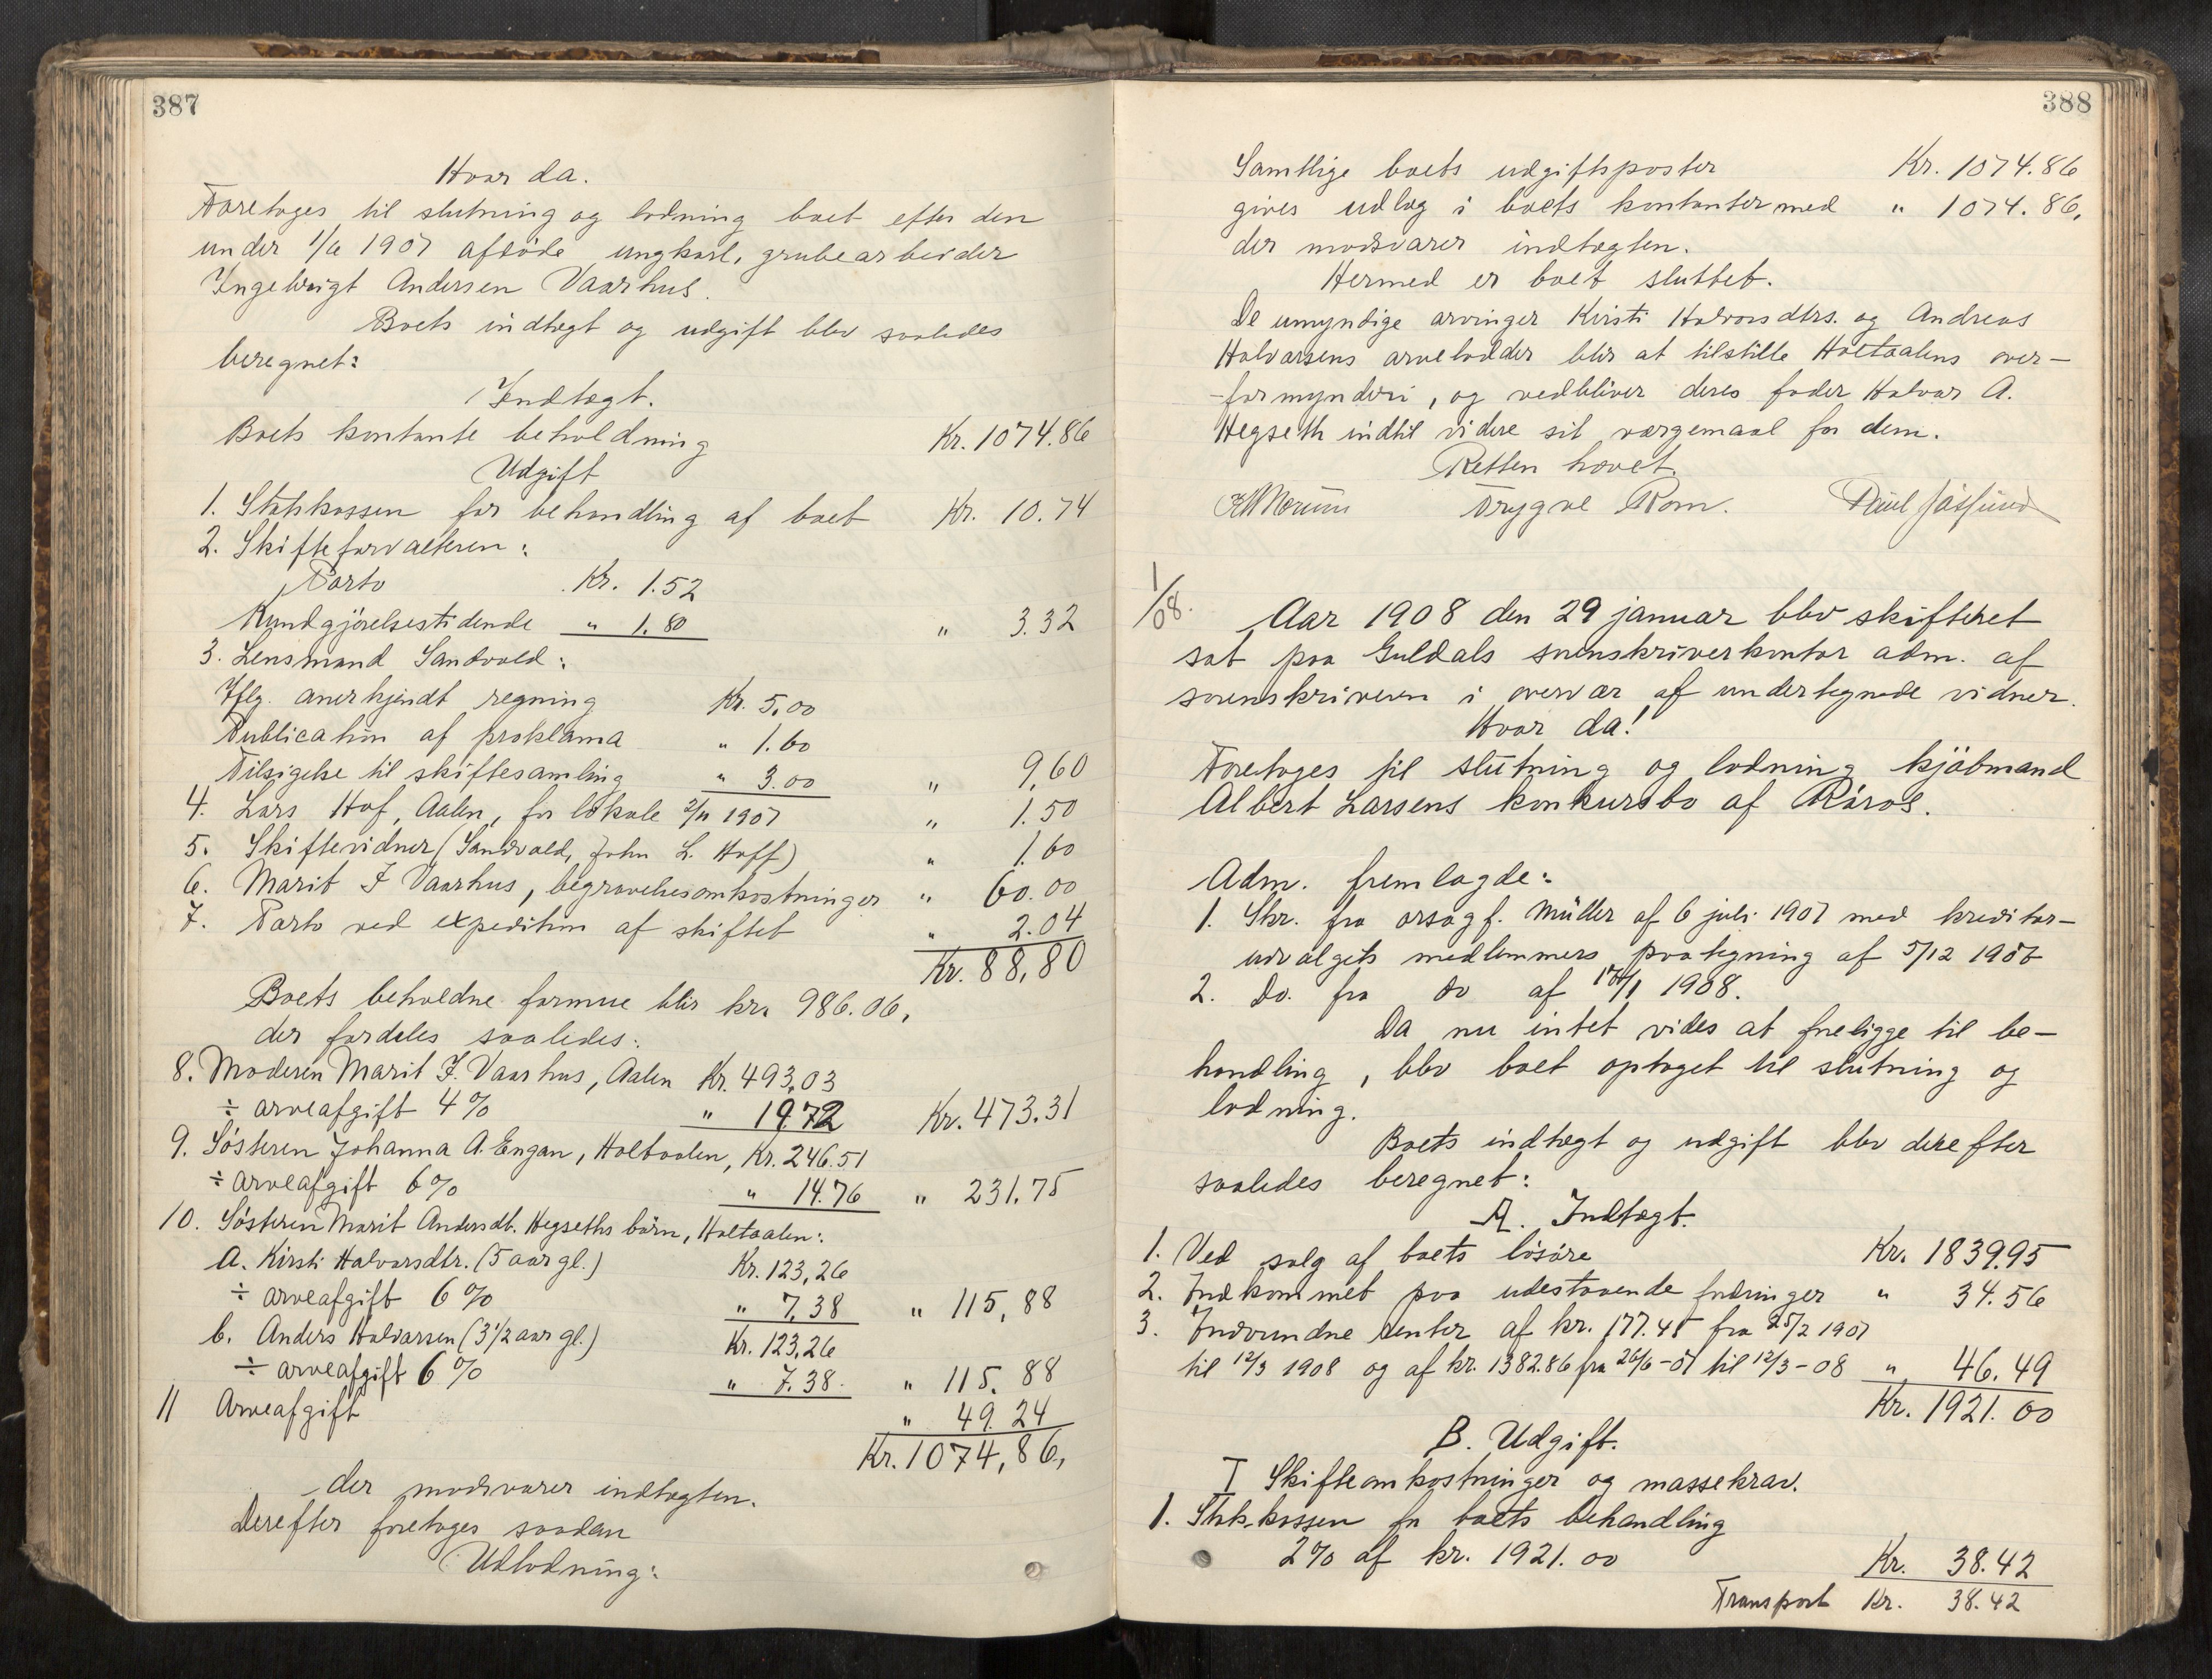 387
Hvor da.
Foretoges til slutning og lodning boet efter den
under 1/6 1907 afdöde ungkarl, grubearbeider
Ingebrigt Andersen Vaarhus.
Boets indtægt og udgift blev saaledes
beregnet:
Indtægt.
Boets kontante beholdning Kr. 1074.86
Udgift
1. Statskassen for behandling af boet Kr. 10.74
2. Skifteforvalteren:
Porto Kr. 1.52
Kundgjörelsestidende " 1.80 " 3.32
3. Lensmand Sandvold:
Iflg. anerkjendt regning Kr. 5.00
Publication af proklama " 1.60
Tilsigelse til skiftesamling " 3.00 " 9,60
4. Lars Hof, Aalen, for lokale 2/11 1907 " 1.50
5. Skiftevidner (Sandvold, John L. Hoff) " 1.60
6. Marit J Vaarhus, begravelsesomkostninger " 60.00
7. Porto ved expedition af skiftet " 2.04
Kr. 88,80
Boets beholdne formue blir kr. 986.06,
der fordeles saaledes:
8. Moderen Marit J. Vaarhus, Aalen Kr. 493,03
÷ arveafgift 4% " 19.72 Kr. 473.31
9. Sösteren Johanna A. Engan, Holtaalen, Kr. 246.51
÷ arveafgift 6% " 14.76 " 231.75
10. Sösteren Marit Andersdt. Hegseths börn, Holtaalen:
a. Kirsti Halvorsdtr. (5 aar gl.) Kr. 123,26
÷ arveafgift 6% " 7,38 " 115,88
b. Anders Halvorsen (3 1/2 aar gl.) Kr. 123,26
÷ arveafgift 6% " 7.38 " 115.88
11 Arveafgift " 49.24
Kr. 1074,86,
der modsvarer indtægten.
Derefter foretoges saadan
Udlodning:
388
Samtlige boets udgiftsposter Kr. 1074.86
gives udlæg i boets kontanter med " 1074.86,
der modsvarer indtægten.
Hermed er boet sluttet.
De umyndige arvinger Kirsti Halvorsdtrs. og Andreas
Halvorsens arvelodder blir at tilstille Holtaalens over-
-formynderi, og vedbliver deres fader Halvor A.
Hegseth indtil videre sit værgemaal for dem.
Retten hævet.
Trygve Rom.
1/08.
Aar 1908 den 29 januar blev skifteret
sat paa Guldals sorenskriverkontor adm. af
sorenskriveren i overvær af undertegnede vidner.
Hvor da!
Foretoges til slutning og lodning kjöbmand
Albert Larsens konkursbo af Röros.
Adm. fremlagde:
1. Skr. fra orsagf. Müller af 6 juli 1907 med kreditor-
udvalgets medlemmers paategning af 5/12 1907
2. Do. fra do af 17/1 1908.
Da nu intet vides at foreligge til be-
handling, blev boet optaget til slutning og
lodning.
Boets indtægt og udgift blev derefter
saaledes beregnet:
A. Indtægt.
1. Ved salg af boets lösöre Kr. 1839.95
2. Indkommet paa udestaaende fordringer " 34.56
3. Indvundne renter af kr. 177.45 fra 25/2 1907
til 12/3 1908 og af kr. 1382.86 fra 26/6-07 til 12/3-08 " 46.49
Kr. 1921.00
B. Udgift.
I Skifteomkostninger og massekrav.
1. Statskassen for boets behandling
2% af kr. 1921.00 Kr. 38.42
Transport Kr. 38.42